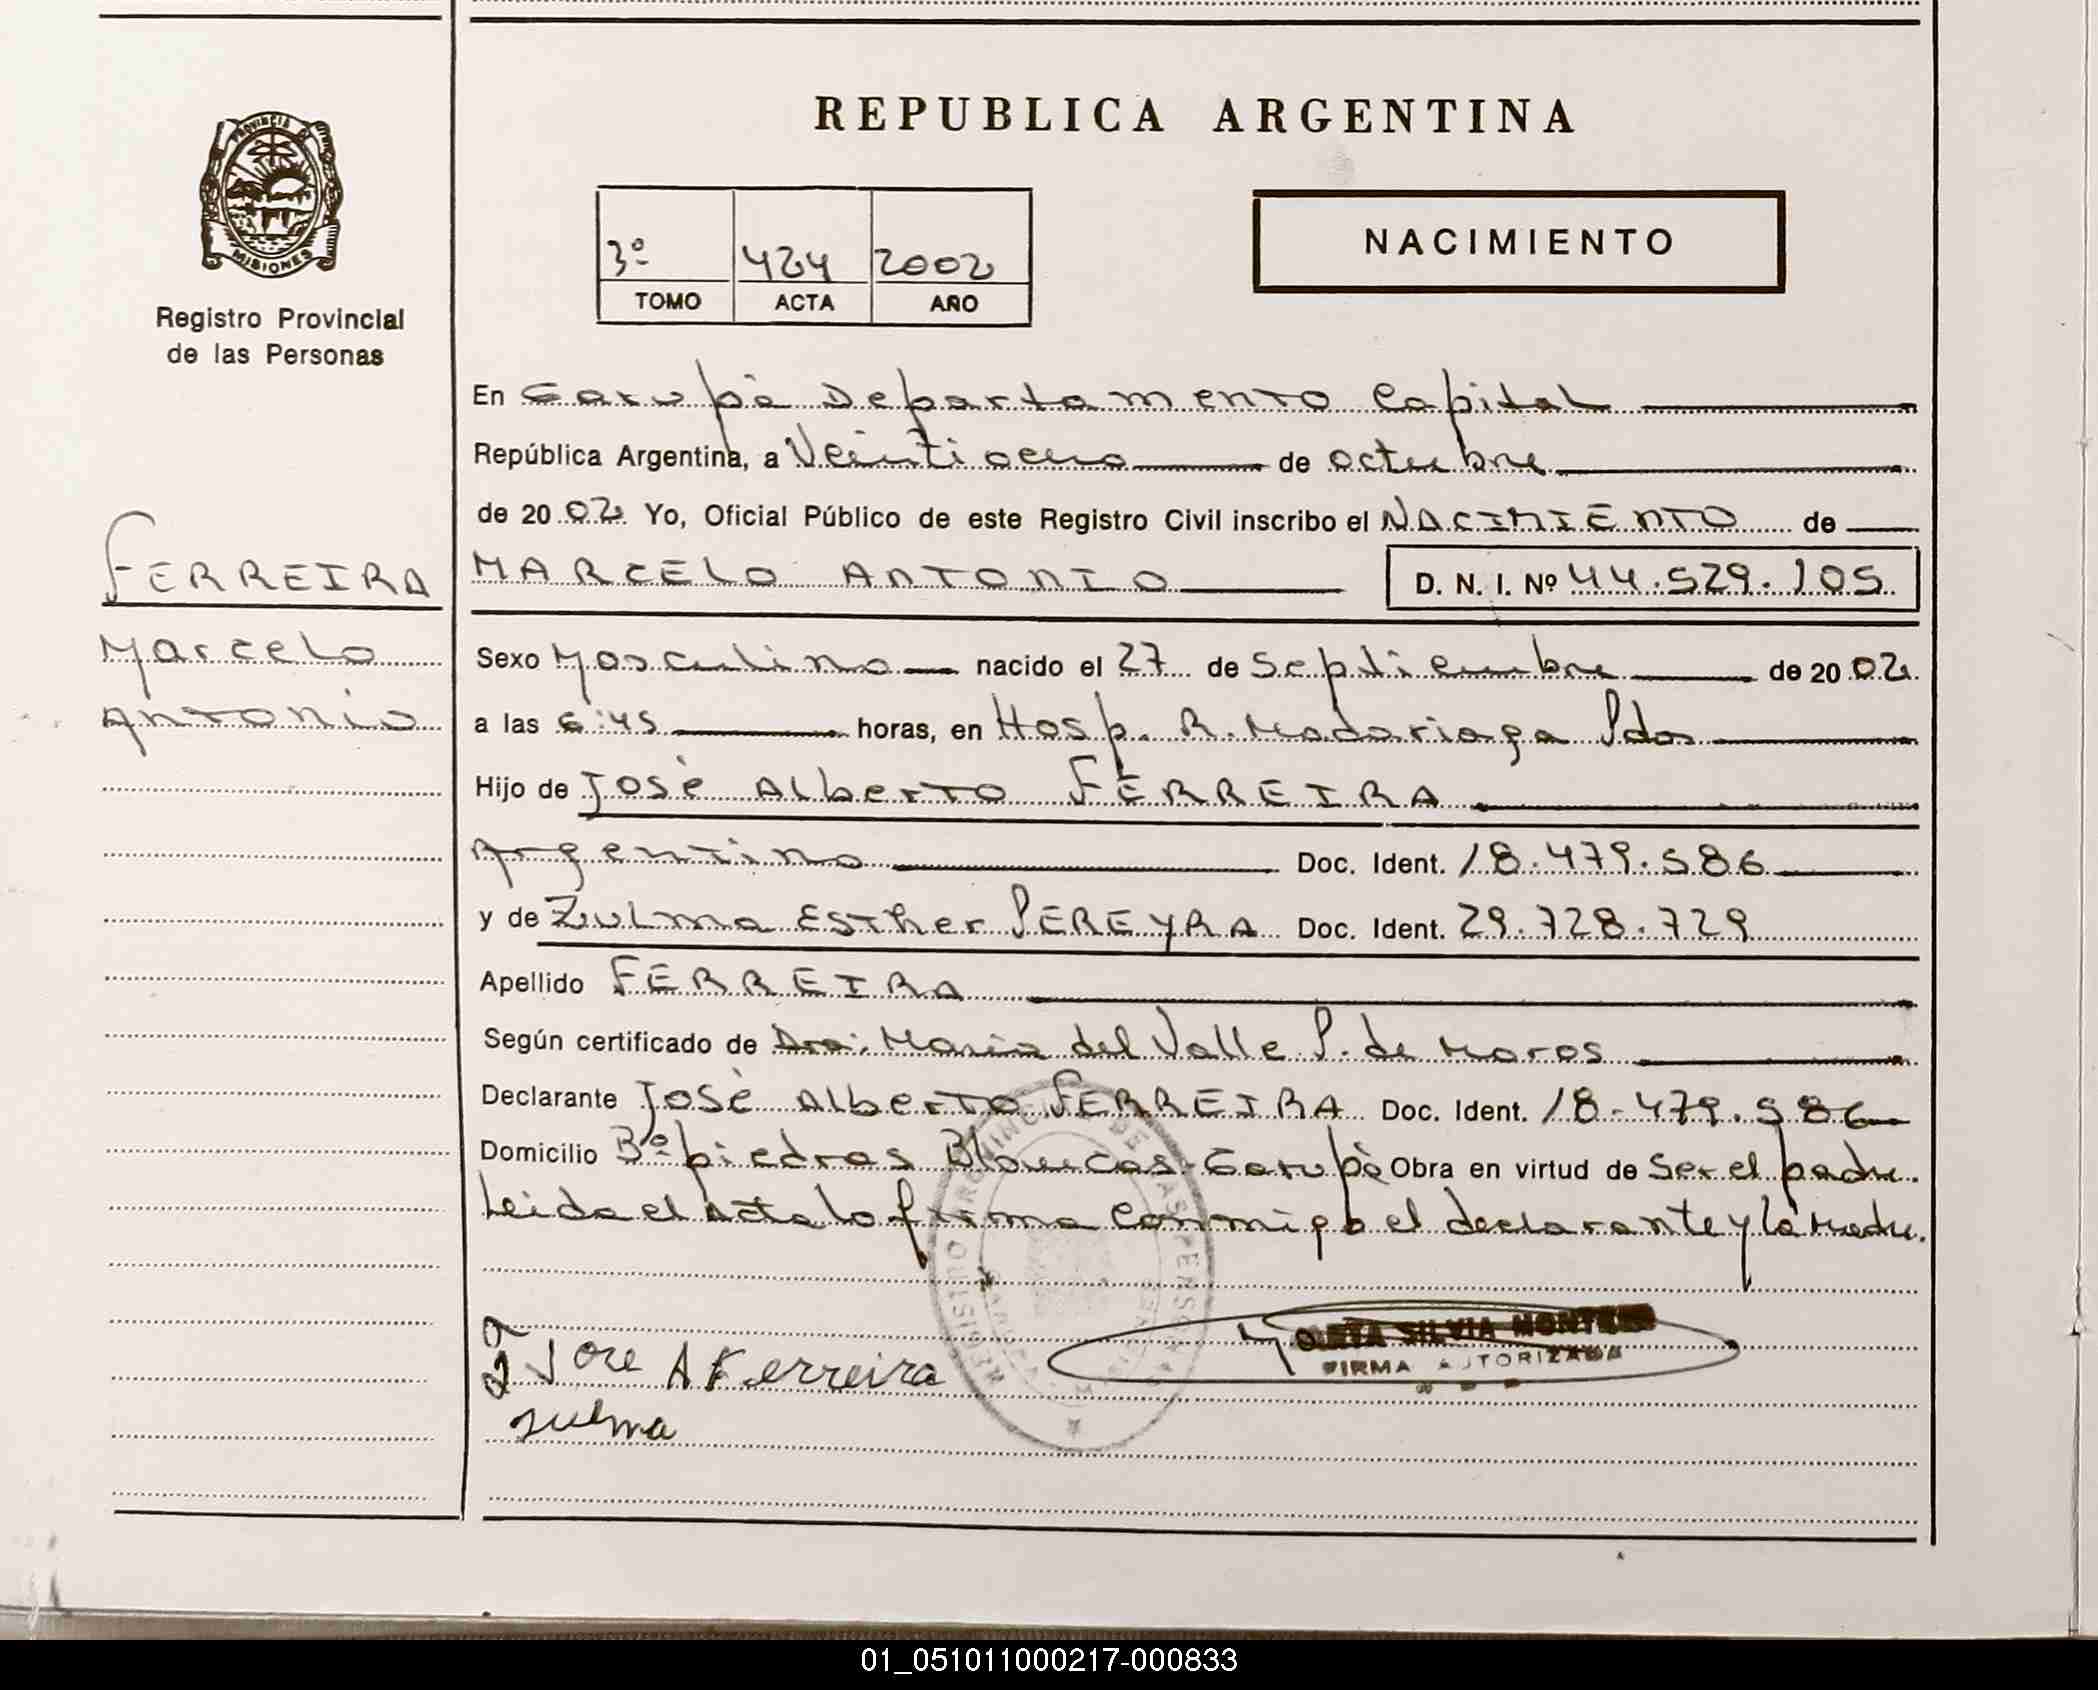 PROVINCIA DE
MISIONES
Registro Provincial
de las Personas
FERREIRA
Marcelo
Antonio
REPUBLICA ARGENTINA
3º 424 2002
TOMO ACTA AÑO
NACIMIENTO
En Garupá Departamento Capital
República Argentina, a Veintiocho de octubre
de 2002 Yo, Oficial Público de este Registro Civil inscribo el NACIMIENTO de
MARCELO ANTONIO D. N. I. Nº 44.529.105
Sexo Masculino nacido el 27 de Septiembre de 2002
a las 6:45 horas, en Hosp. R. Madariaga Pdas
Hijo de José Alberto FERREIRA
Argentino Doc. Ident. 18.479.586
y de Zulma Esther PEREYRA Doc. Ident. 29.728.729
Apellido FERREIRA
Según certificado de Dra. María del Valle P. de Moros
Declarante José Alberto FERREIRA Doc. Ident. 18.479.586
Domicilio Bº piedras Blancas-Garupá Obra en virtud de Ser el padre.
Leida el Acta lo firma conmigo el declarante y la Madre.
SILVIA
FIRMA AUTORIZADA
Jose A Ferreira
zulma
01_051011000217-000833